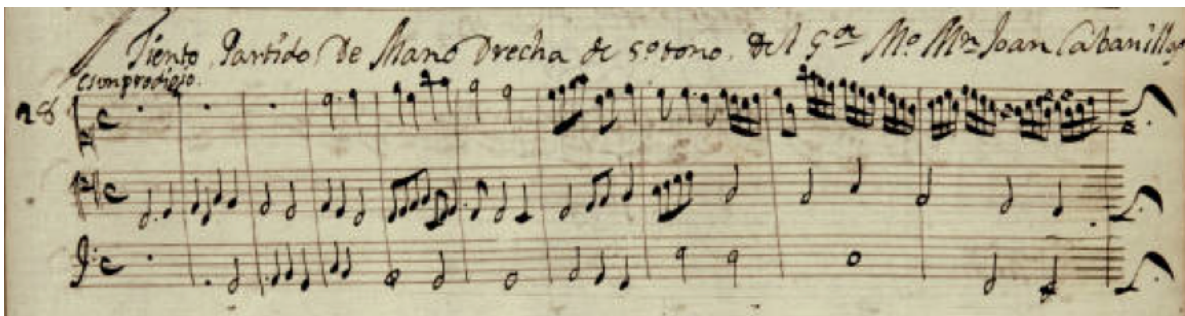 Tiento Partido De Mano Drecha de 5º tono. Del Sor Mº Mn Joan Cabanillas
es un prodigio.
28